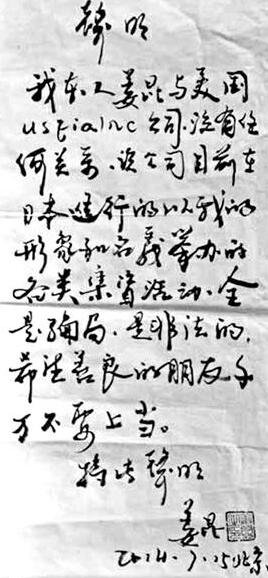 聲明
我本人姜昆与美国
usfia inc 公司,没有任
何关系,该公司目前在
日本进行的以我的
形象和名義举办的
各类集资活动,全
是骗局,是非法的,
希望善良的朋友千
万不要上当。
特此聲明
姜昆
2014.7.15北京